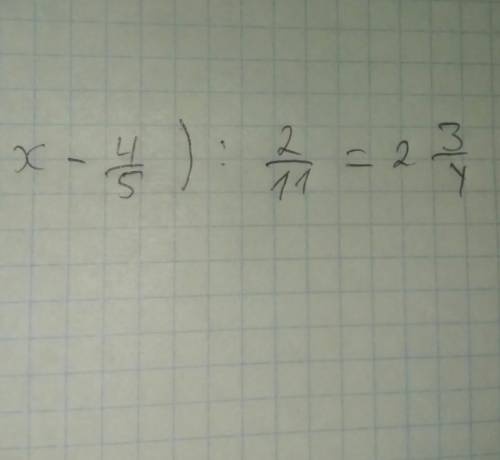 x - 4/5 ) : 2/11 = 2 3/4